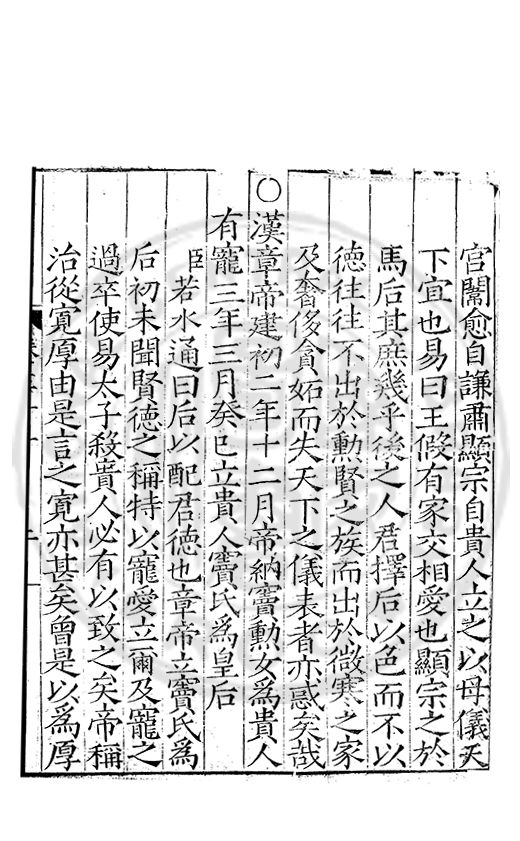 宫闈愈自謙肅顯宗自貴人立之以母儀天
下宜也易曰王假有家交相愛也顯宗之於
馬后其庶幾乎後之人君擇后以色而不以
德往往不出於勲賢之族而出於微寒之家
及奢侈貪妬而失天下之儀表者亦惑矣哉
○漢章帝建初二年十二月帝納竇勲女為貴人
有寵三年三月癸巳立貴人竇氏為皇后
臣若水通曰后以配君德也章帝立竇氏為
后初未聞賢德之稱特以寵愛立爾及寵之
過卒使易太子殺貴人必有以致之矣帝稱
治從寛厚由是言之寛亦甚矣曾是以為厚